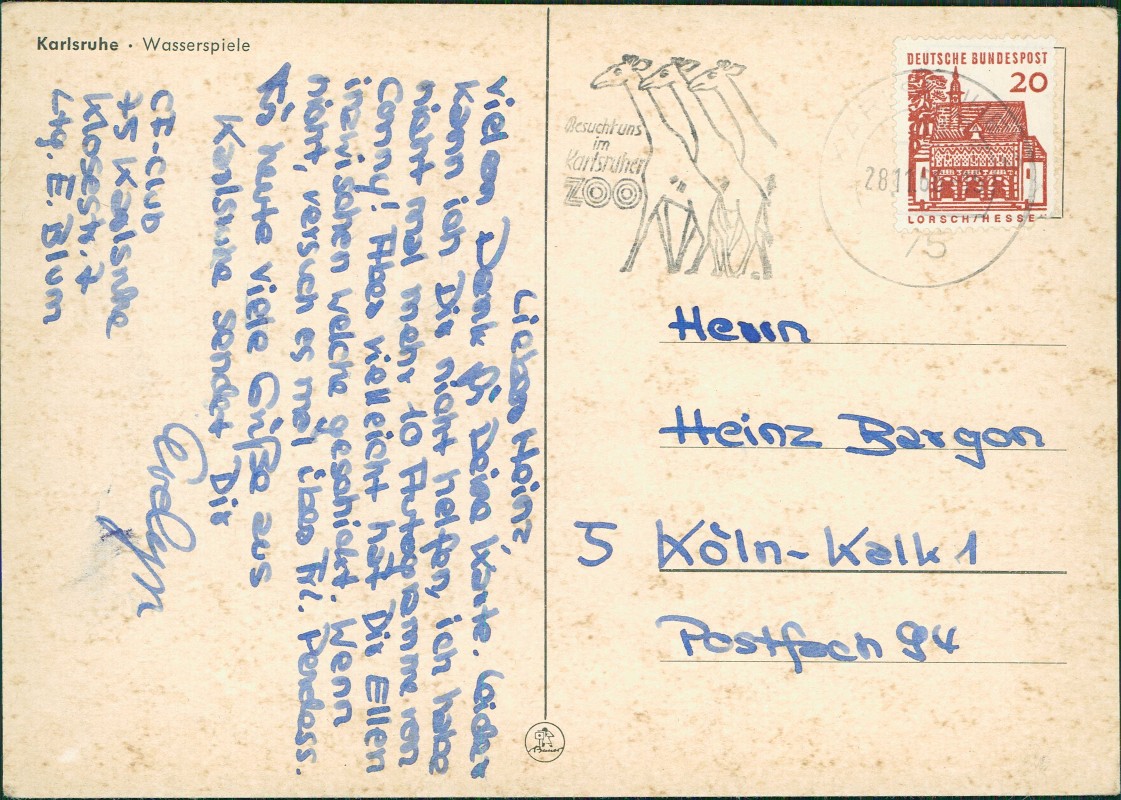 Karlsruhe · Wasserspiele
Lieber Heinz,
vielen Dank für Deine Karte. Leider
kann ich Dir nicht helfen, ich habe
nicht mal mehr 10 Autogramme von
Conny! Aber vielleicht hat Dir Ellen
inzwischen welche geschickt. Wenn
nicht, versuch es mal über Frl. Perdoss.
Für heute viele Grüße aus
Karlsruhe sendet Dir
Evelyn
CF-Club
75 Karlsruhe
Klosestr. 7
Ltg. E. Blum
Besucht uns
im
Karlsruher
ZOO
DEUTSCHE BUNDESPOST
20
LORSCH/HESSEN
28.11.6
75
Herrn
Heinz Bargon
5 Köln-Kalk 1
Postfach 94
Bauer